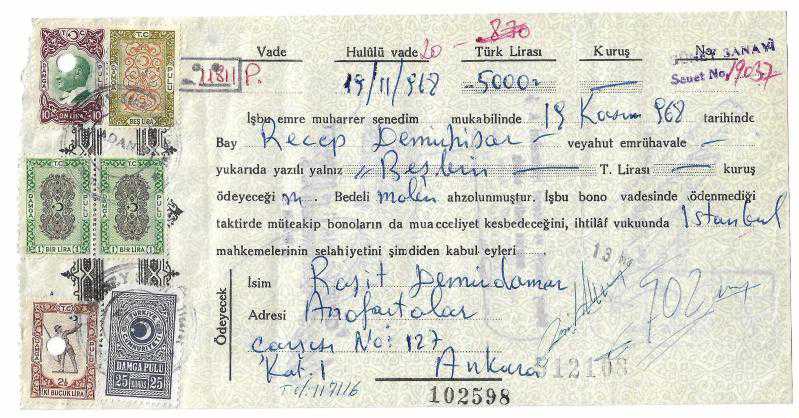 Vade Hulûlü vade Türk Lirası Kuruş No.
20 - 870
GÜNEY SANAYİ
Senet No. 19037
11811 P.
19/11/968 -5000-
İşbu emre muharrer senedim mukabilinde 19 Kasım 968 tarihinde
Bay Recep Demirhisar — veyahut emrühavale —
yukarıda yazılı yalnız "Beşbin — T. Lirası — kuruş
ödeyeceği m . Bedeli malen ahzolunmuştur. İşbu bono vadesinde ödenmediği
taktirde müteakip bonoların da muacceliyet kesbedeceğini, ihtilâf vukuunda İstanbul
mahkemelerinin selahiyetini şimdiden kabul eyleri
13
Ödeyecek
İsim Raşit Demirdamar
Adresi Anafartalar
çarşısı No: 127
Kat. 1 Ankara
902
512108
102598
T.C.
DAMGA PULU
10 ON LİRA 10
T.C.
DAMGA PULU
BEŞ LİRA
ADANA
T.C.
DAMGA PULU
1 BİR LİRA 1
T.C.
DAMGA PULU
1 BİR LİRA 1
T.C.
2½
İKİ BUÇUK LİRA
TÜRKİYE
CUMHURİYETİ
DAMGA PULU
25 KURUŞ 25